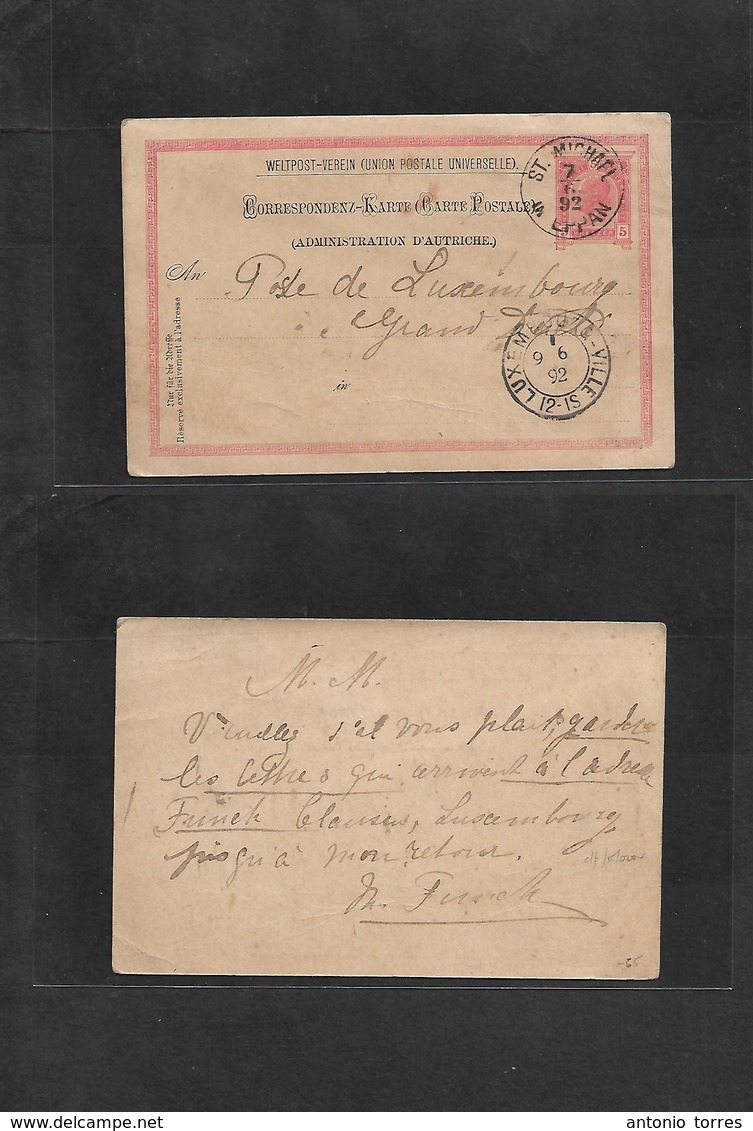 WELTPOST-VEREIN (UNION POSTALE UNIVERSELLE).
CORRESPONDENZ-KARTE (CARTE POSTALE)
(ADMINISTRATION D'AUTRICHE.)
ST. MICHAEL
7
6
92
IN EPPAN
5 5
An Poste de Luxembourg
Grand Duché
in
Nur für die Adresse
Réservé exclusivement à l'adresse
LUXEMBOURG-VILLE
9 6
92
12-1S
M. M.
Veuillez s'il vous plait, garder
les lettres qui arrivent à l'adresse
Funck Clausen, Luxembourg
jusqu'à mon retour.
M. Funck
-65
antonio torres